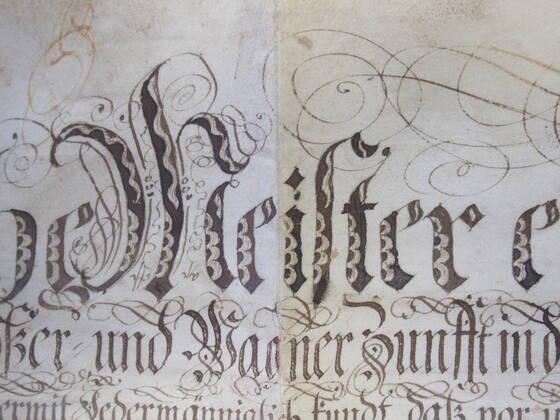 Meister
und Wagner Zunfft in
Jedermänniglich kundt, daß vor